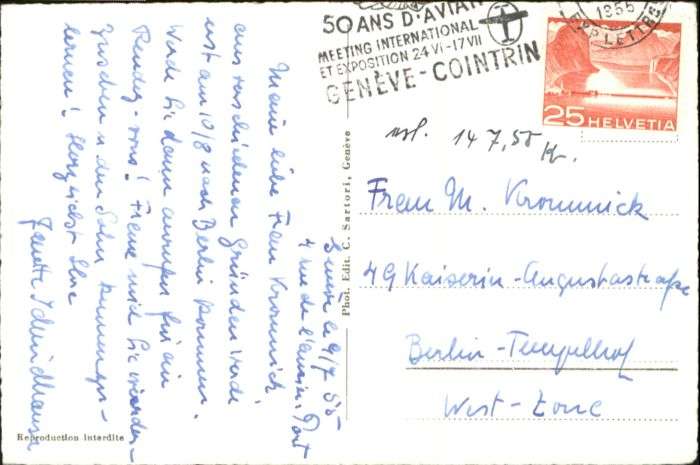 50 ANS D'AVIAT
MEETING INTERNATIONAL
ET EXPOSITION 24 VI-17 VII
GENÈVE-COINTRIN
1955
LETTRE
25 HELVETIA
erl. 14 7.55
Kr.
Genève le 9/7 55
4 rue de l'ancien Port
Meine liebe Frau Kronnick,
aus verschiedenen Gründen werde
erst am 10/8 nach Berlin kommen.
Werde Sie dann anrufen für ein
Rendez-vous! Freue mich Sie wieder-
zusehen u den Sohn kennenzu-
lernen! Herzlichst Ihre
Phot. Edit. C. Sartori, Genève
Frau M. Kronnick
49 Kaiserin-Augustastraße
Berlin-Tempelhof
West-Zone
Reproduction interdite